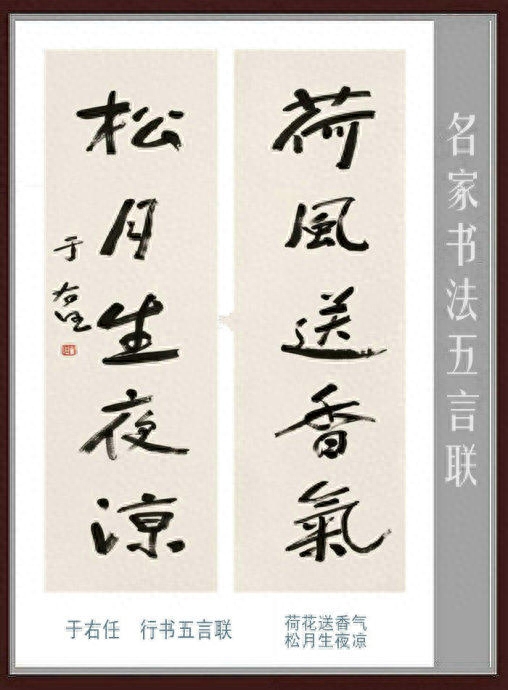 名家书法五言联
荷風送香氣
松月生夜凉
于右任
于右任 行书五言联
荷花送香气
松月生夜凉